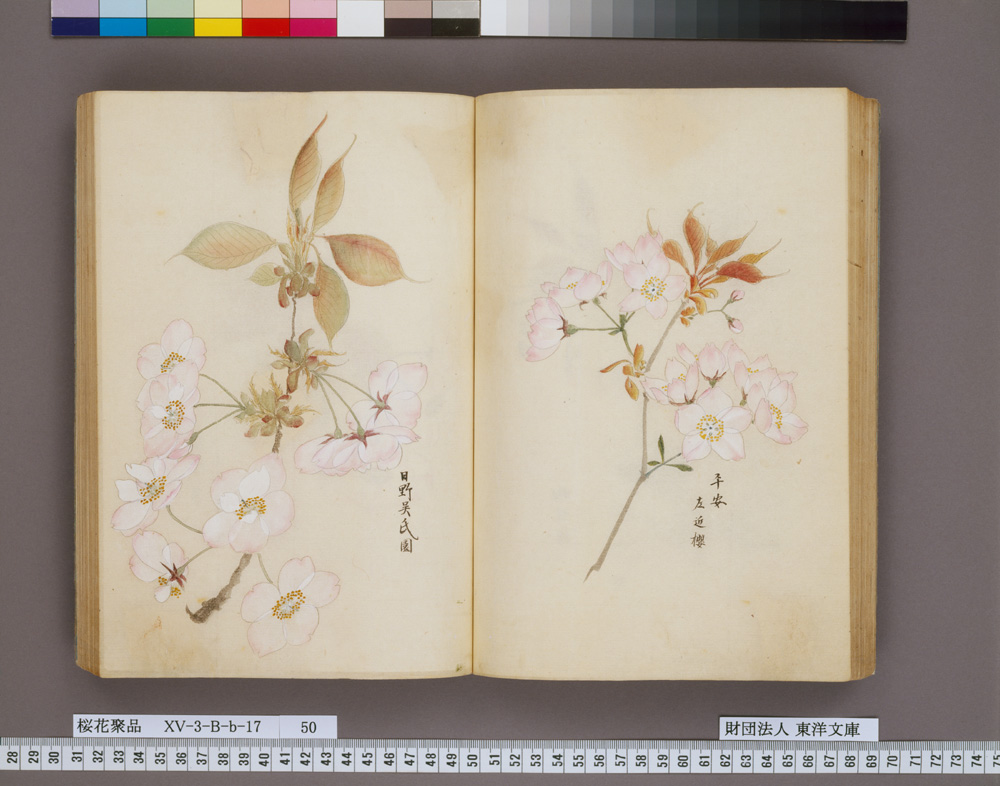 平安
左近櫻
日野吴氏園
桜花聚品 XV-3-B-b-17 50
財団法人 東洋文庫
28 29 30 31 32 33 34 35 36 37 38 39 40 41 42 43 44 45 46 47 48 49 50 51 52 53 54 55 56 57 58 59 60 61 62 63 64 65 66 67 68 69 70 71 72 73 74 75